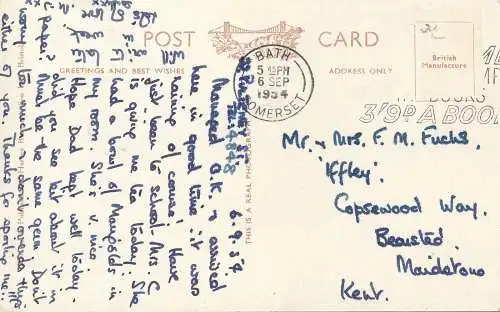 POST CARD
GREETINGS AND BEST WISHES
ADDRESS ONLY
British
Manufacture
BATH
5 PM
6 SEP
1954
SOMERSET
3'9D A BOOK
THIS IS A REAL PHOTOGRAPH
Mr. & Mrs. F. M. Fuchs,
'Iffley',
Copsewood Way,
Bearsted,
Maidstone
Kent.
TEL: 4848
6.9.54
Managed O.K. & arrived
here in good time. It was
raining of course! Have
just been to school. Mrs. C
is giving me tea today. She
had a bowl of Marigolds in
my room. She's v. nice
Hope Dad kept well today.
Did you see bit about it in
paper?
Must be the same germ. Don't
worry too much & don't overdo things
either of you. Thanks for